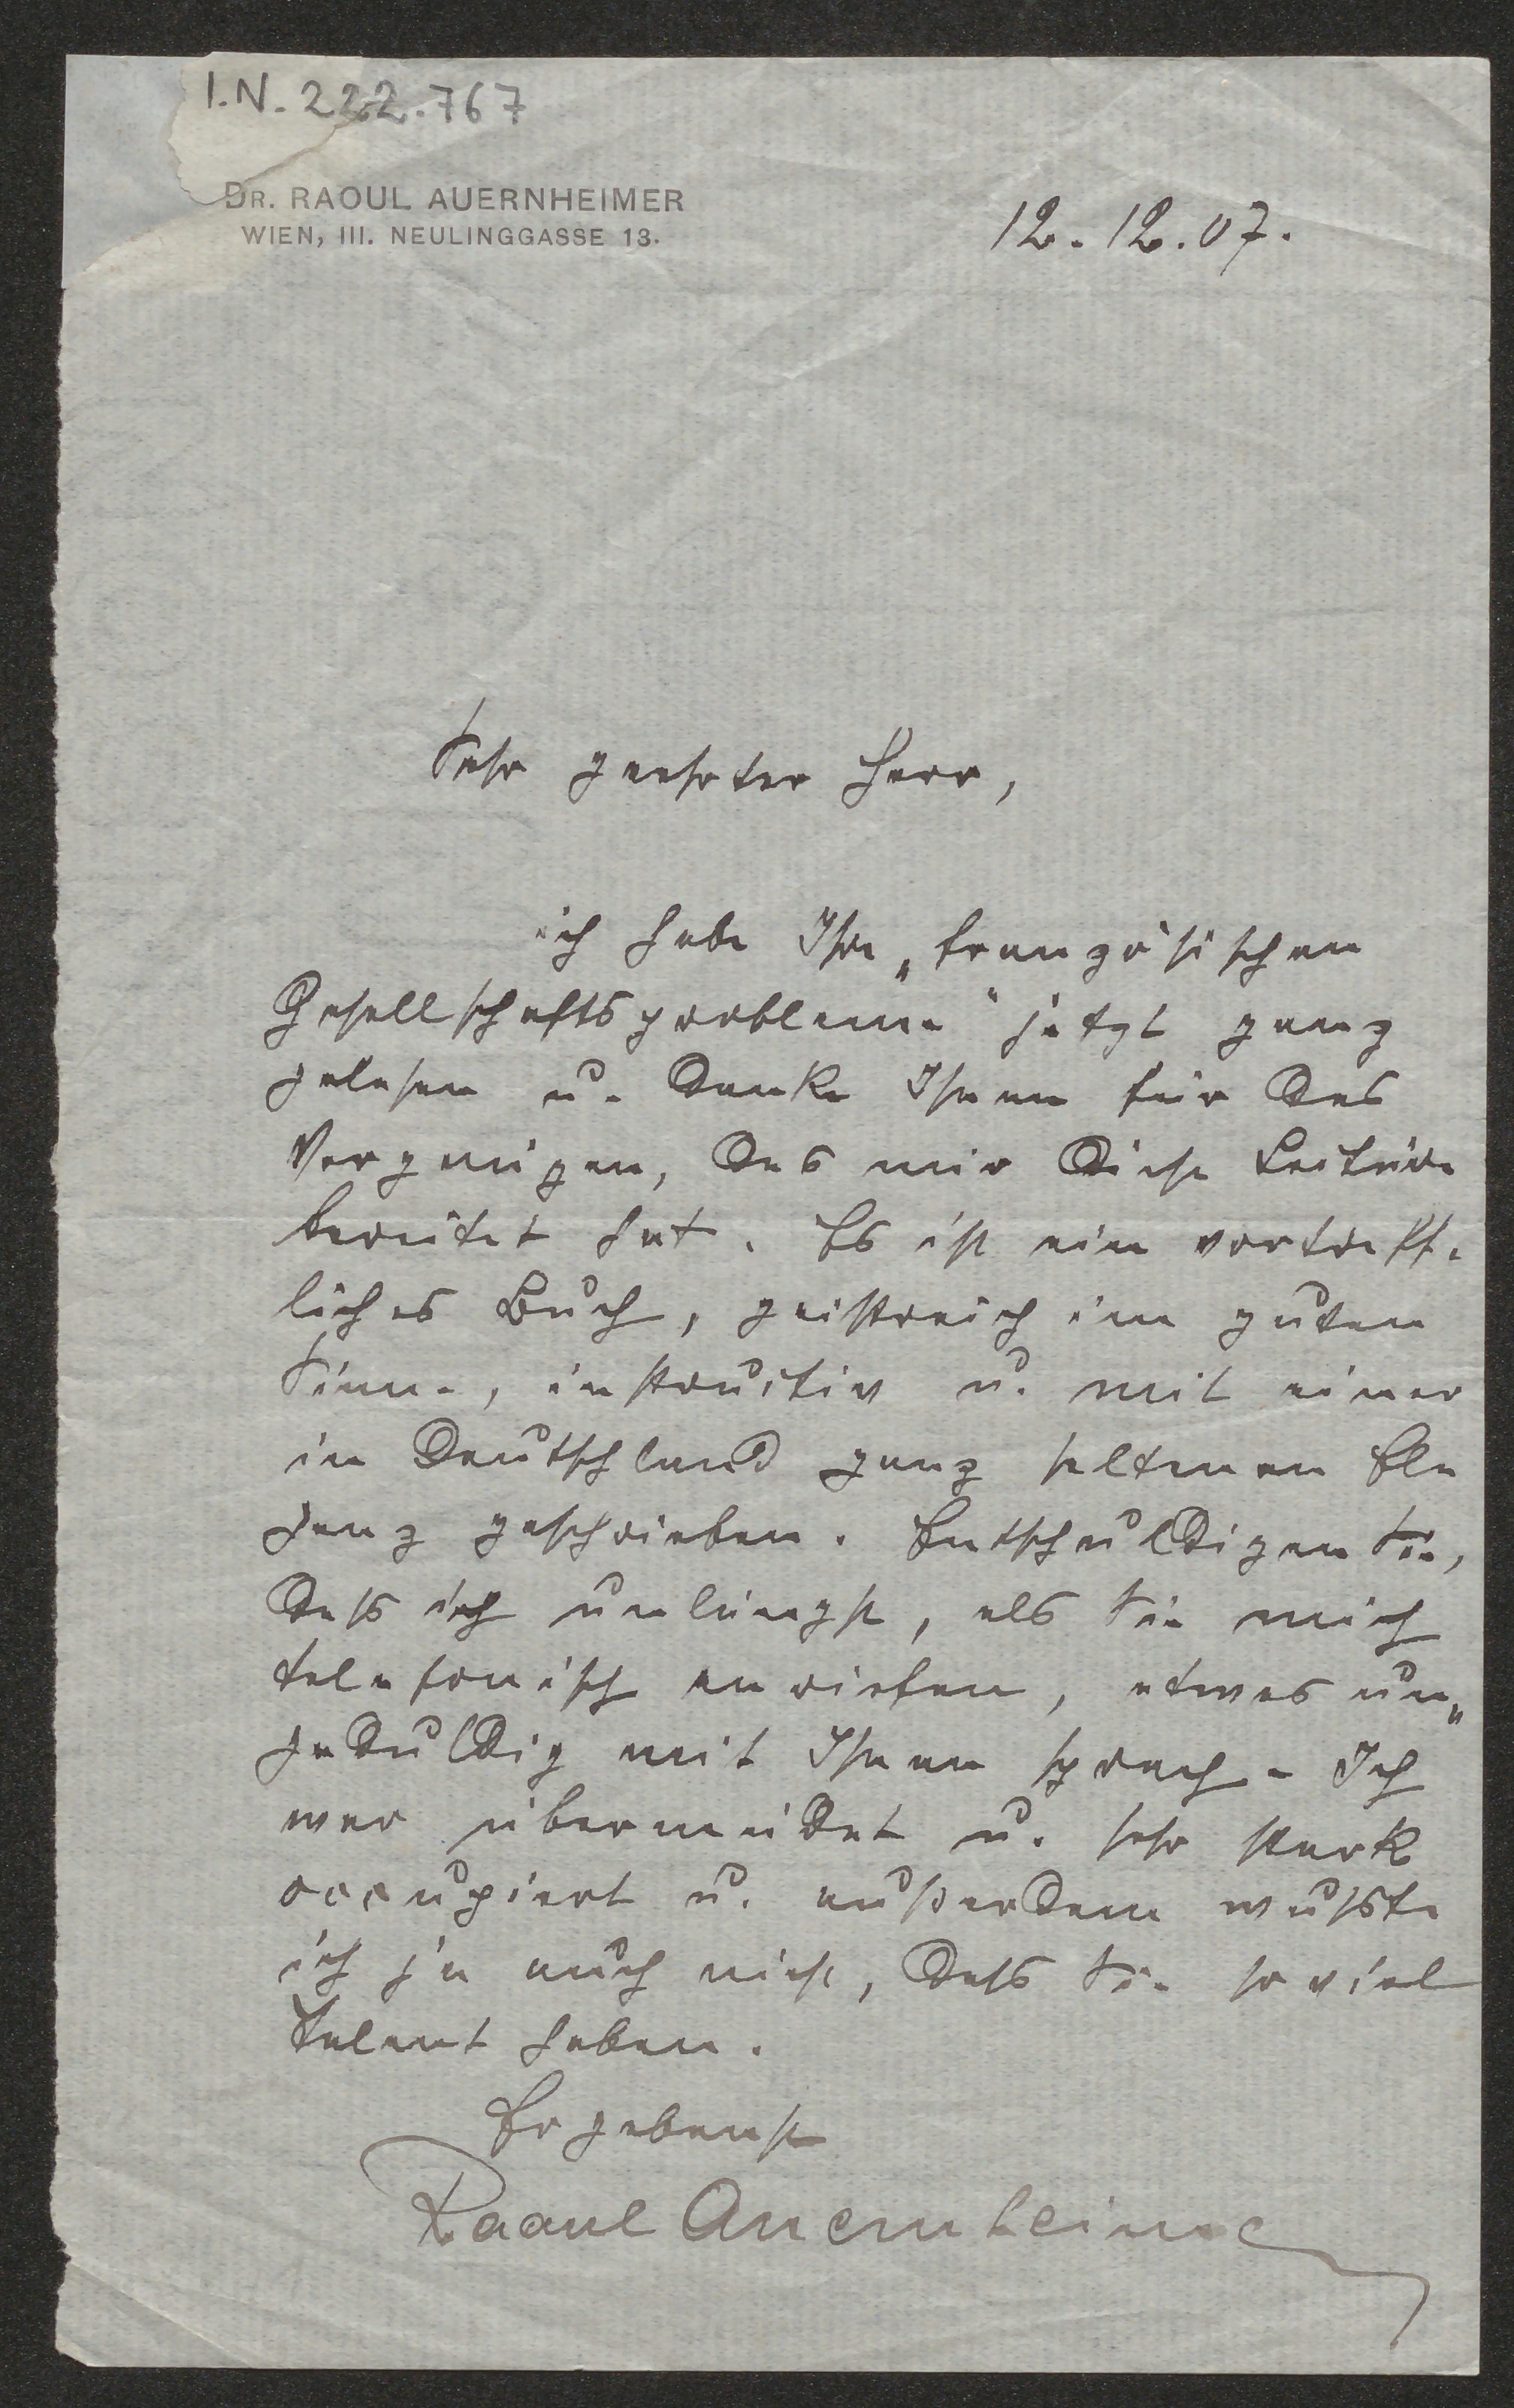 I.N. 222.767
DR. RAOUL AUERNHEIMER
WIEN, III. NEULINGGASSE 13.
12.12.07.
Sehr geehrter Herr,
ich habe Ihre „französischen
Gesellschaftsprobleme“ jetzt ganz
gelesen u. danke Ihnen für das
Vergnügen, das mir diese Lectüre
bereitet hat. Es ist ein vortreff-
liches Buch, geistreich im guten
Sinne, instructiv u. mit einer
in Deutschland ganz seltenen Ele
ganz geschrieben. Entschuldigen Sie,
dass ich unlängst, als Sie mich
telefonisch anriefen, etwas un„
geduldig mit Ihnen sprach. Ich
war übermüdet u. sehr stark
occupiert u. außerdem wußte
ich ja auch nicht, dass Sie so viel
Talent haben.
Ergebenst
Raoul Auernheimer